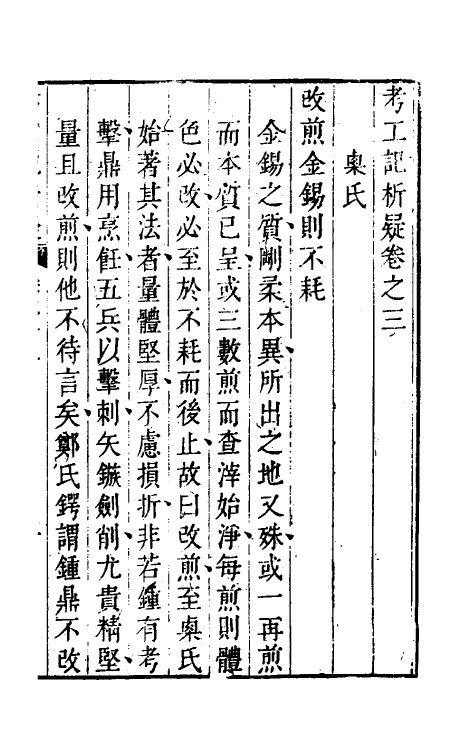 考工記析疑卷之三
㮚氏
改煎金錫則不耗
金錫之質剛柔本異所出之地又殊或一再煎
而本質已呈或三數煎而查滓始淨每煎則體
色必改必至於不耗而後止故曰改煎至㮚氏
始著其法者量體堅厚不慮損折非若鍾有考
擊鼎用烹飪五兵以擊刺矢鏃劍削尤貴精堅
量且改煎則他不待言矣鄭氏鍔謂鍾鼎不改